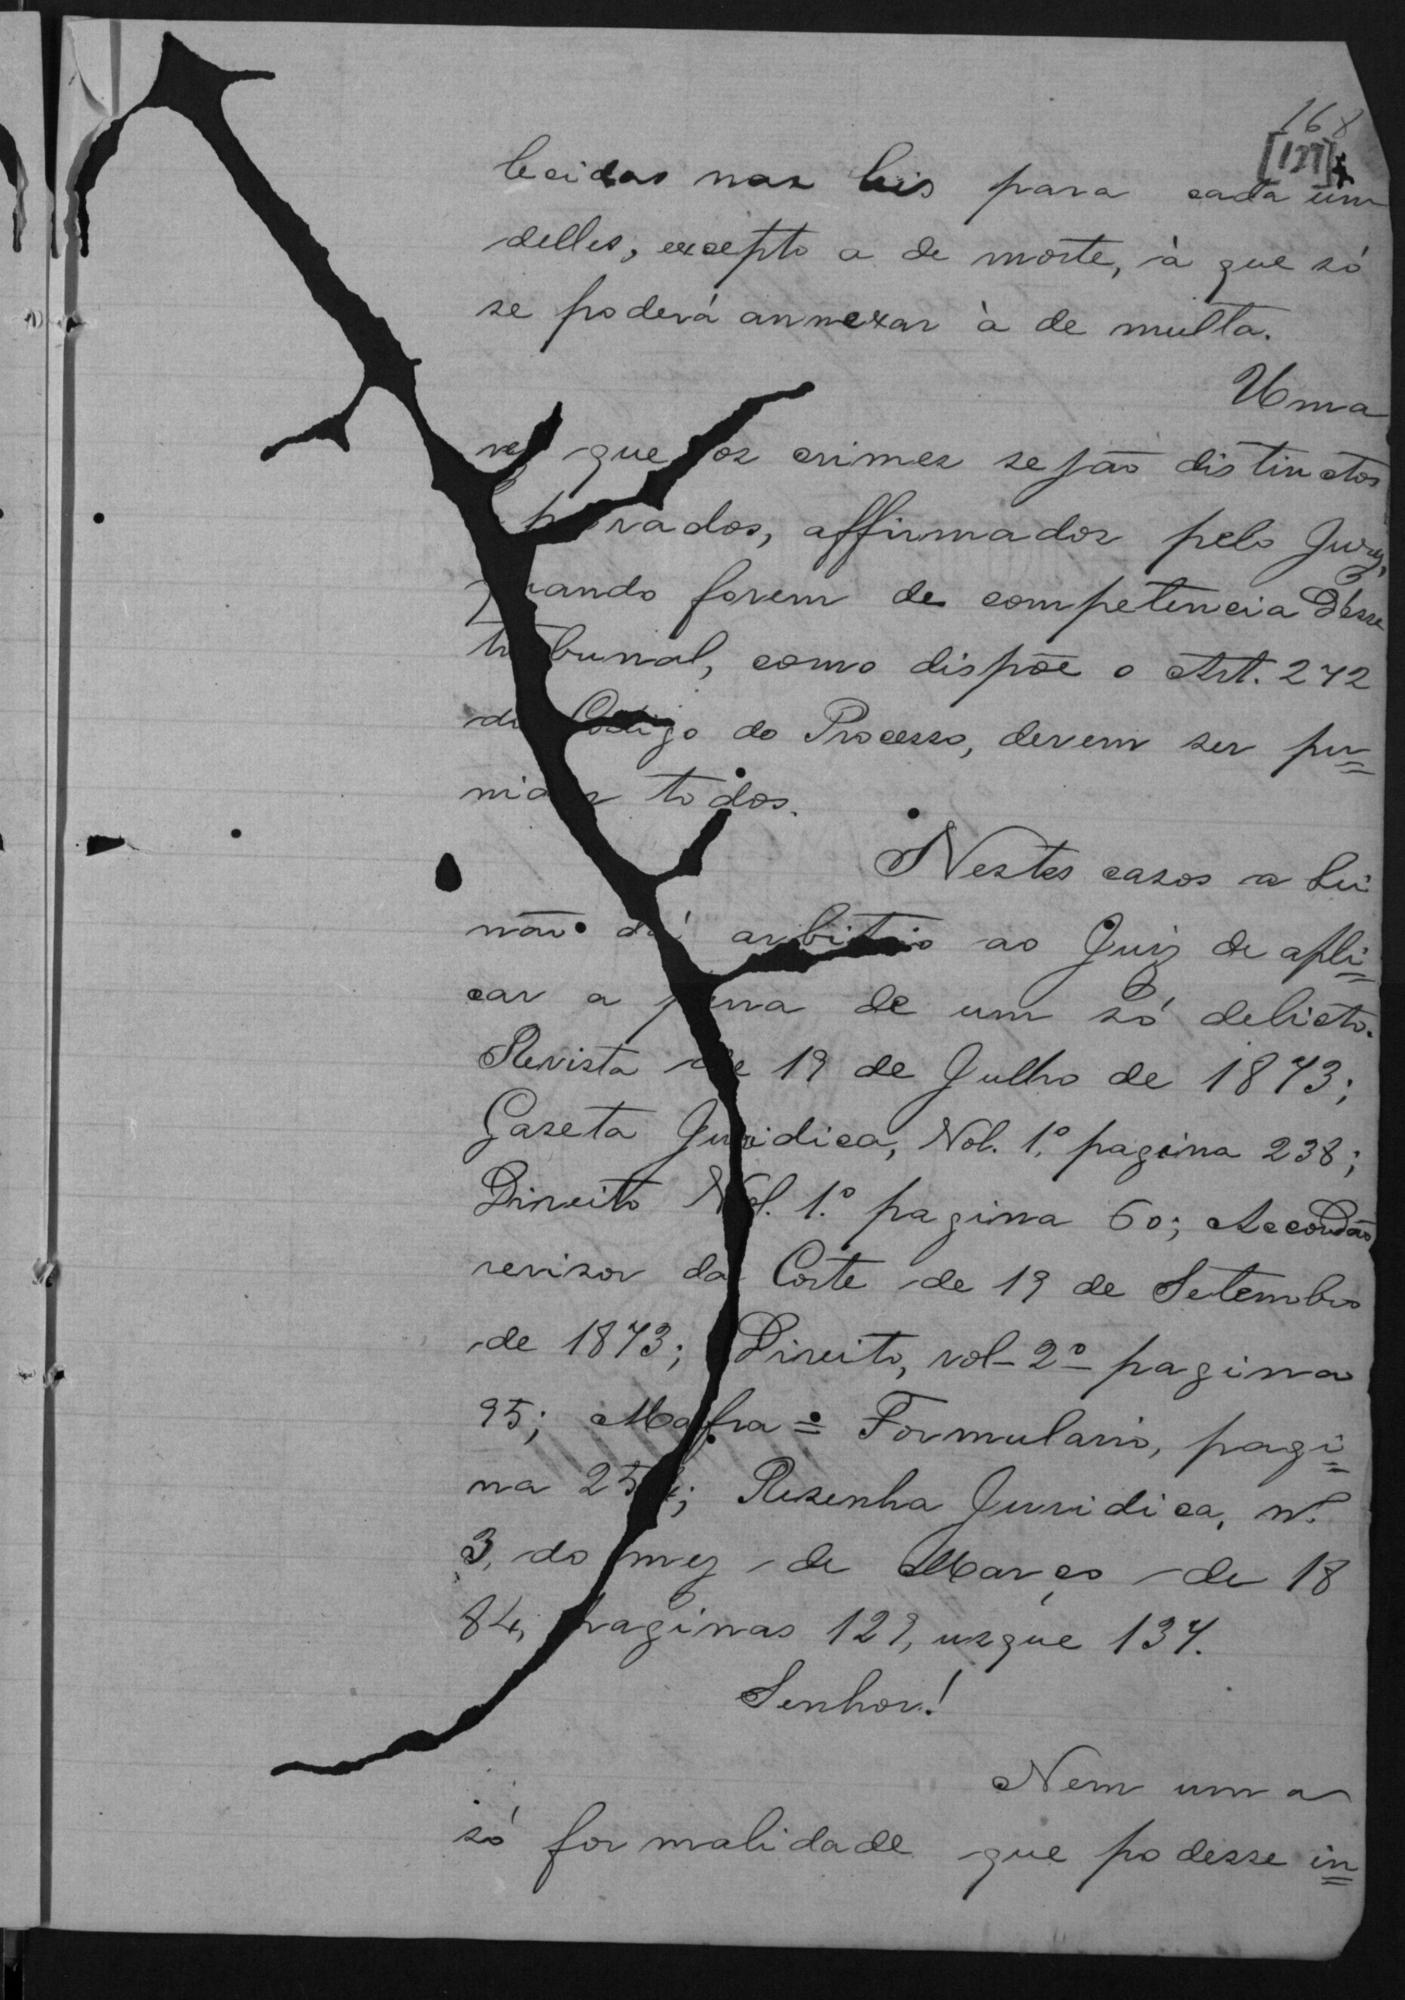 168
[127]
lecidas nas leis para cada um
delles, excepto a de morte, à que só
se poderá annexar à de multa.
Uma
vez que os crimes sejão distinctos
provados, affirmados pelo Jury,
quando forem de competencia d'esse
tribunal, como dispõe o Art. 272
do Codigo do Processo, devem ser pu=
nidos todos.
Nestes casos a Lei
não dá arbitrio ao Juiz de apli=
car a pena de um só delicto.
Revista de 19 de Julho de 1873;
Gaseta Juridica, Vol. 1.º pagina 238;
Direito Vol. 1.º pagina 60; Accordão
revisor da Corte de 19 de Setembro
de 1873; Direito, vol- 2º- pagina
95; Mafra = Formulario, pagi=
na 254; Resenha Juridica, nº
3, do mez de Março de 18
84, paginas 129, usque 137.
Senhor!
Nem uma
só formalidade que podesse in=